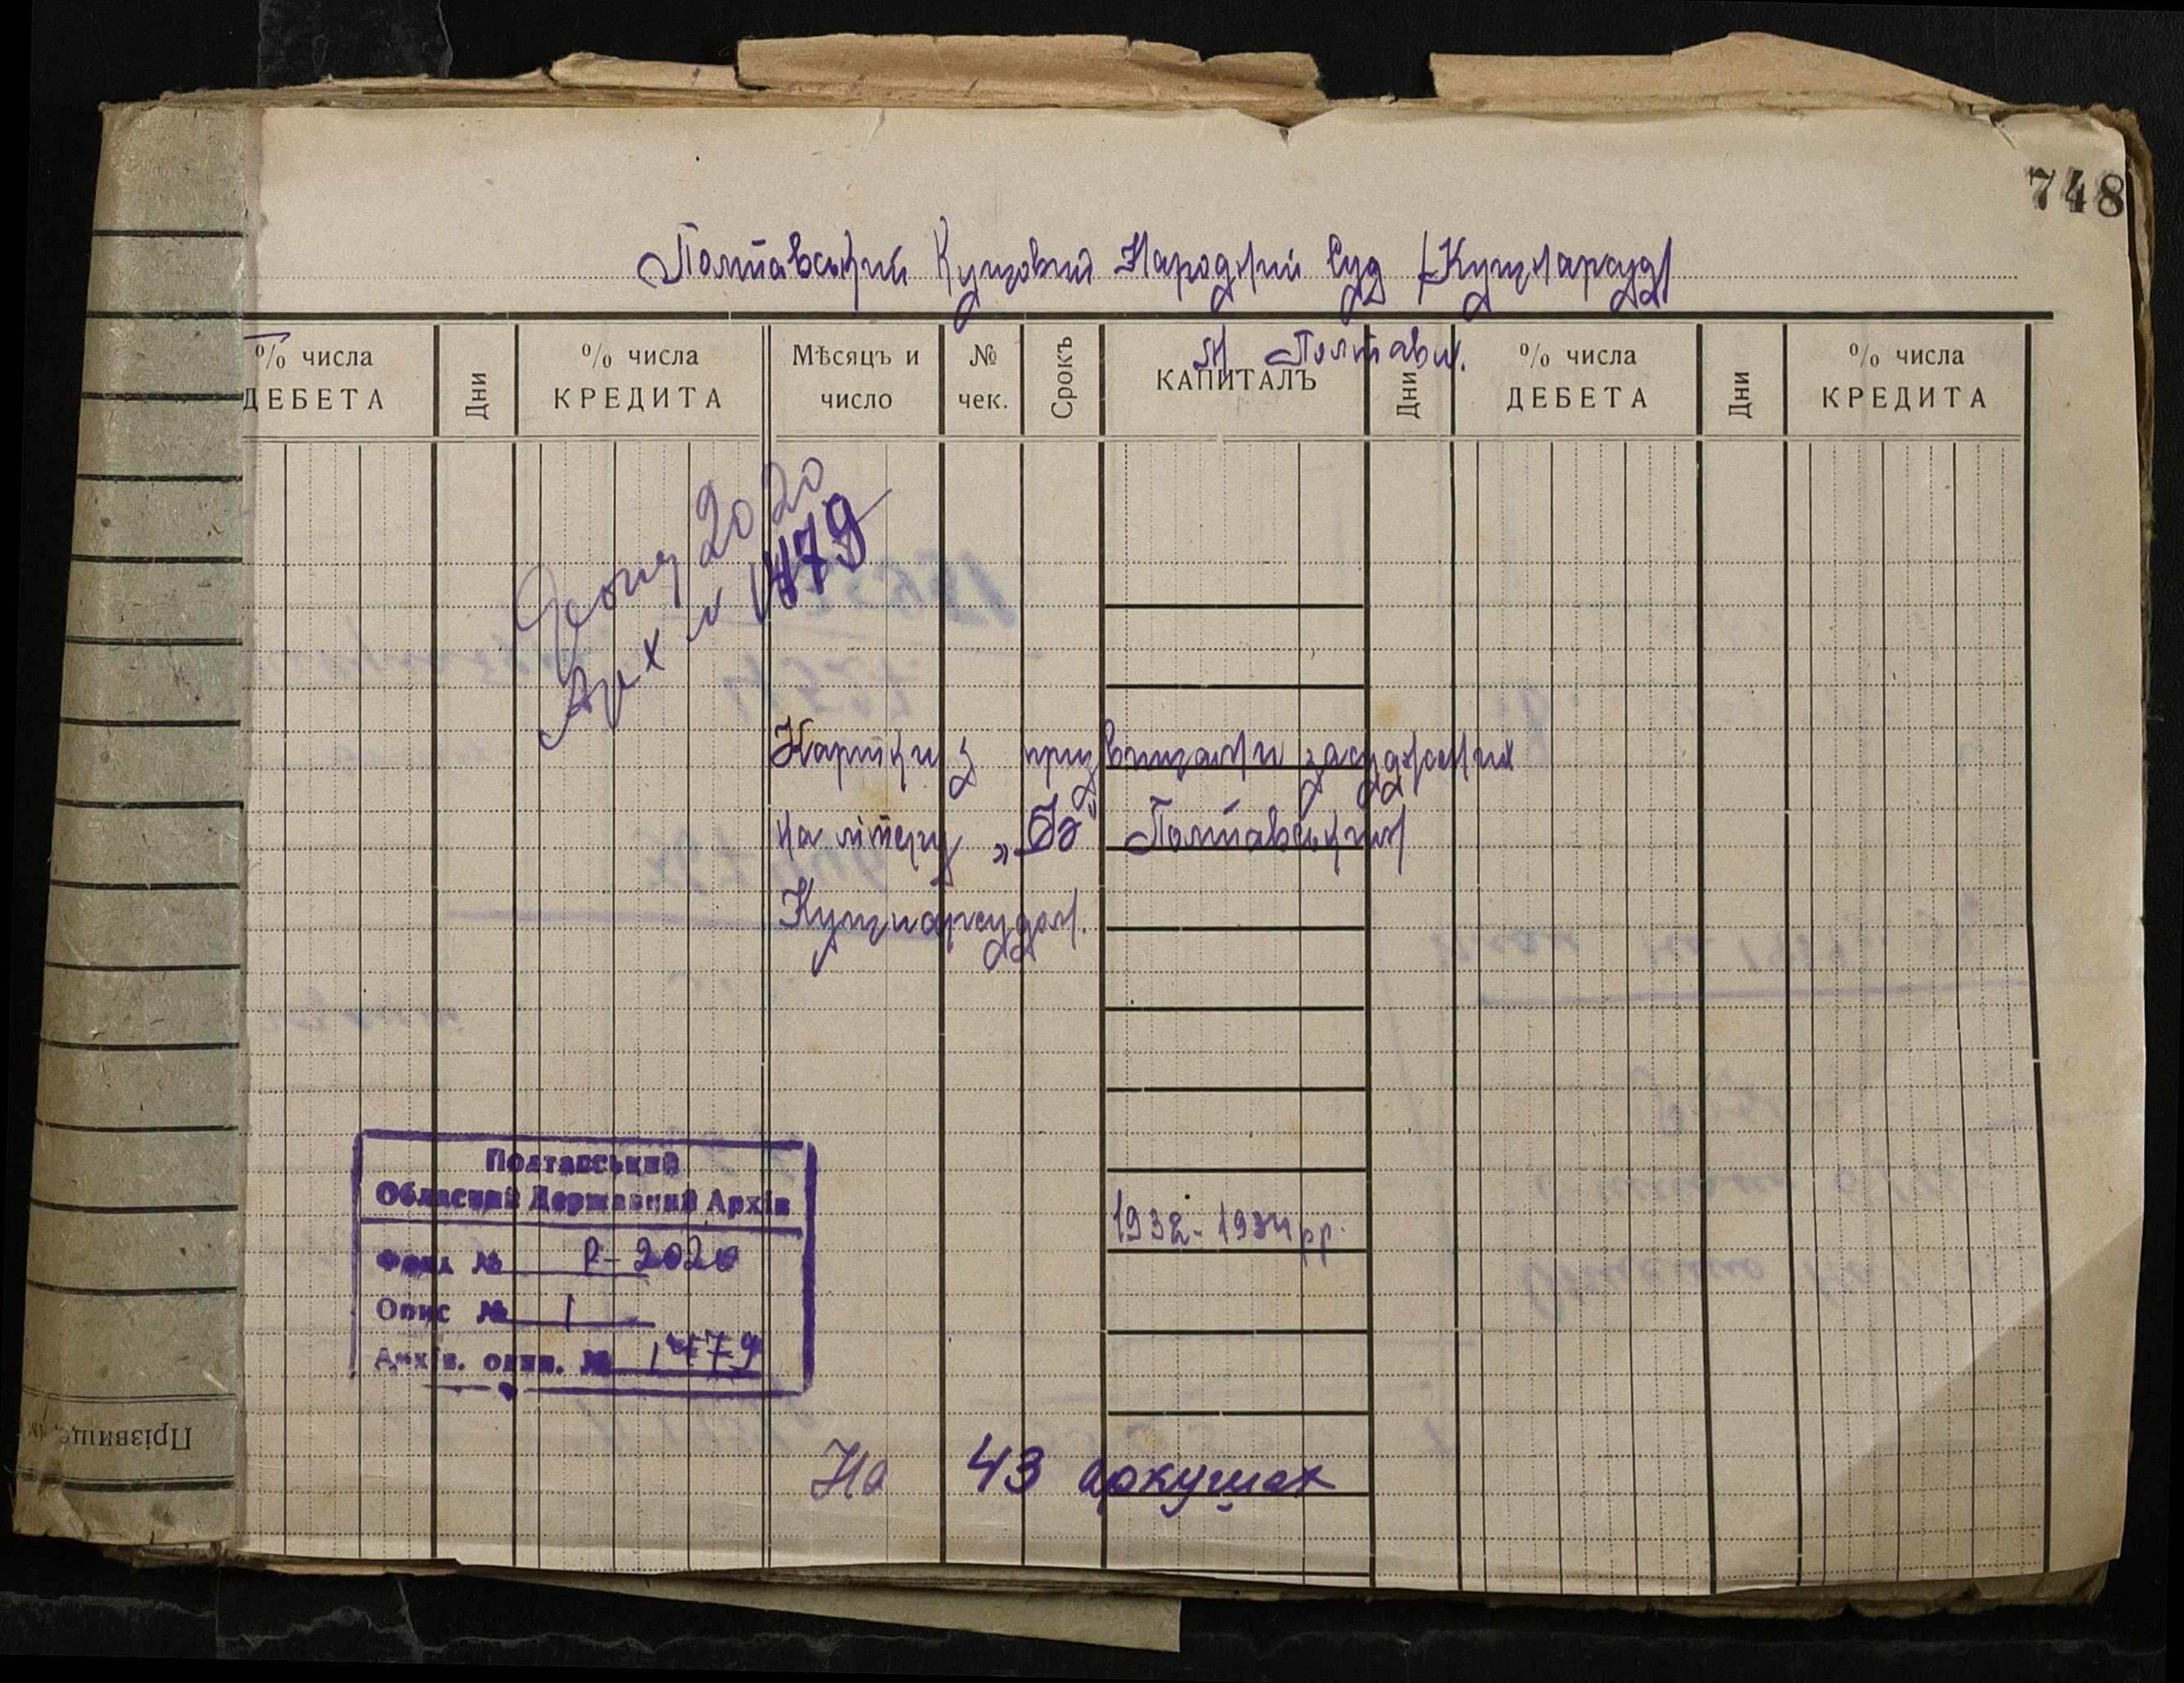 748
Полтавський Кущовий Народний Суд /Кущнарсуд/
м Полтави.
% числа ДЕБЕТА
Дни
% числа КРЕДИТА
Мѣсяцъ и число
№ чек.
Срокъ
КАПИТАЛЪ
Дни
% числа ДЕБЕТА
Дни
% числа КРЕДИТА
Фонд 2020
Арх № 1479
Картки з призвищами засуджених
на літеру „Бо" Полтавським
Кущнарсудом.
Полтавський
Обласний Державний Архів
Фонд № Р-2020
Опис № 1
Архів. один. № 1479
1932-1934 рр.
На 43 аркушах
Прізвище